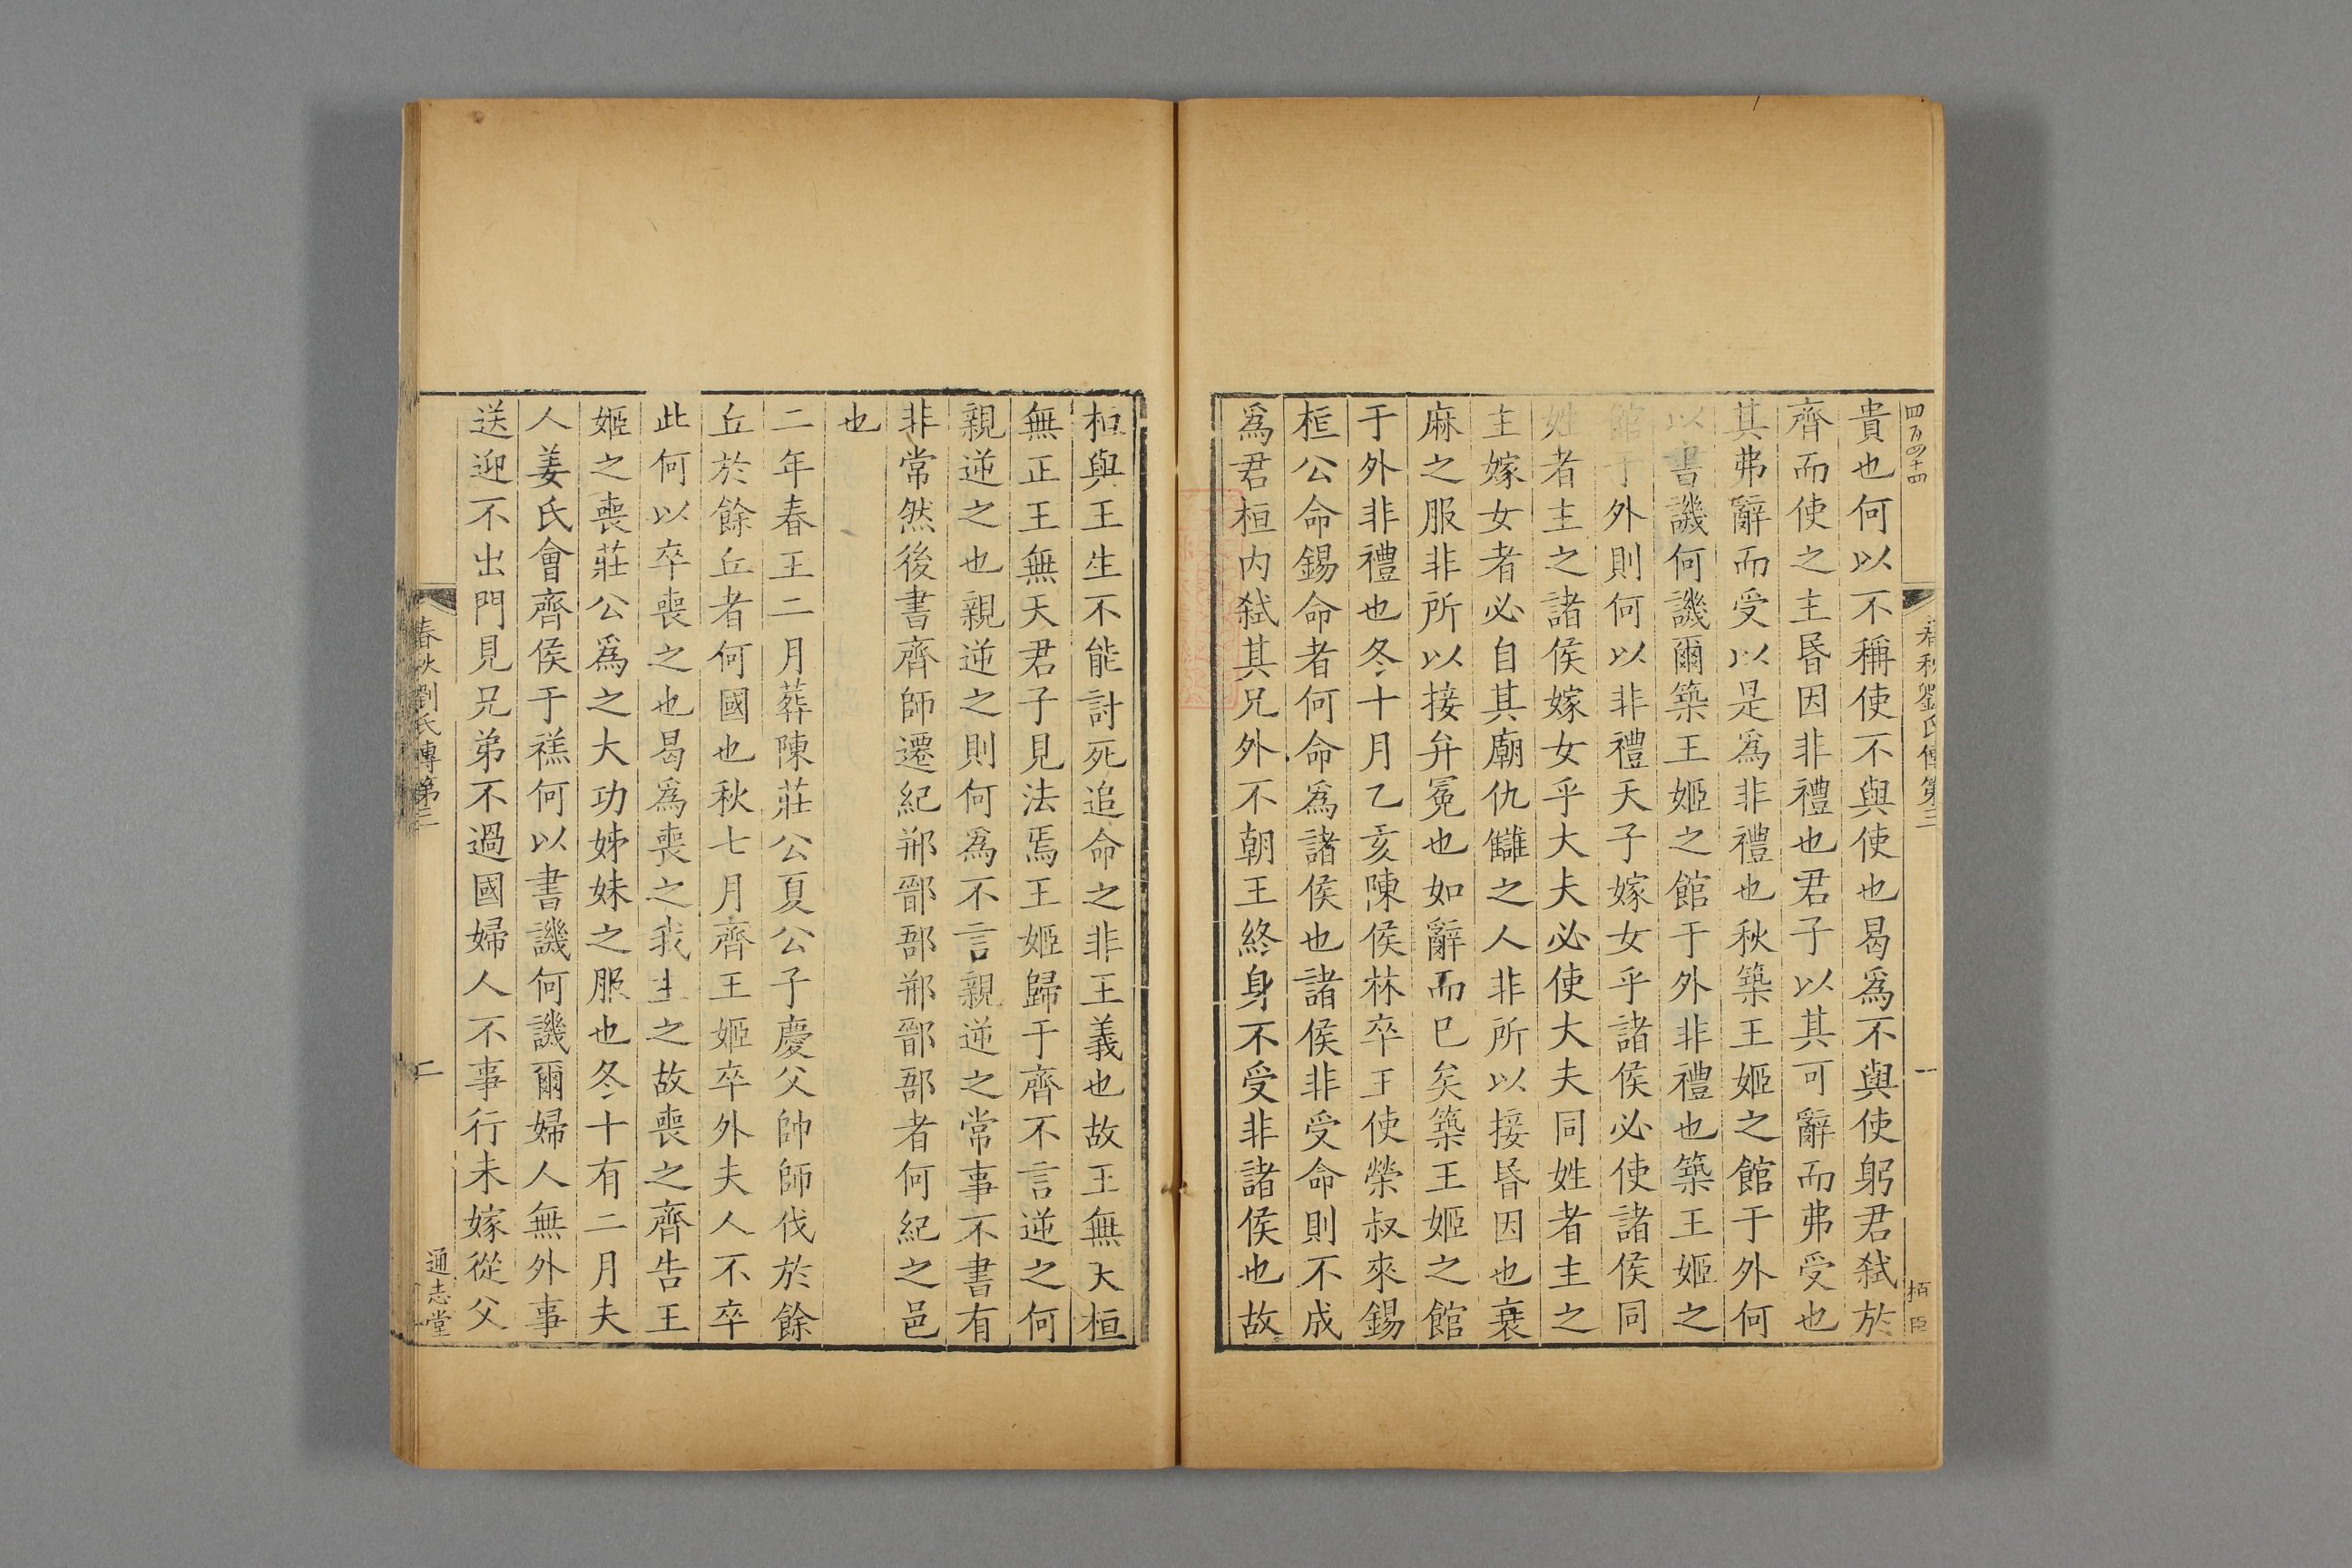 四百四十四
春秋劉氏傳第三
一
貴也何以不稱使不與使也曷爲不與使躬君弑於
齊而使之主昏因非禮也君子以其可辭而弗受也
其弗辭而受以是爲非禮也秋築王姬之館于外何
以書譏何譏爾築王姬之館于外非禮也築王姬之
館于外則何以非禮天子嫁女乎諸侯必使諸侯同
姓者主之諸侯嫁女乎大夫必使大夫同姓者主之
主嫁女者必自其廟仇讎之人非所以接昏因也衰
麻之服非所以接弁冕也如辭而已矣築王姬之館
于外非禮也冬十月乙亥陳侯林卒王使榮叔來錫
桓公命錫命者何命爲諸侯也諸侯非受命則不成
爲君桓内弑其兄外不朝王終身不受非諸侯也故
桓與王生不能討死追命之非王義也故王無天桓
無正王無天君子見法焉王姬歸于齊不言逆之何
親逆之也親逆之則何爲不言親逆之常事不書有
非常然後書齊師遷紀郱鄑郚郱鄑郚者何紀之邑
也
二年春王二月葬陳莊公夏公子慶父帥師伐於餘
丘於餘丘者何國也秋七月齊王姬卒外夫人不卒
此何以卒喪之也曷爲喪之我主之故喪之齊告王
姬之喪莊公爲之大功姊妹之服也冬十有二月夫
人姜氏會齊侯于禚何以書譏何譏爾婦人無外事
送迎不出門見兄弟不過國婦人不事行未嫁從父
春秋劉氏傳第三
二
通志堂